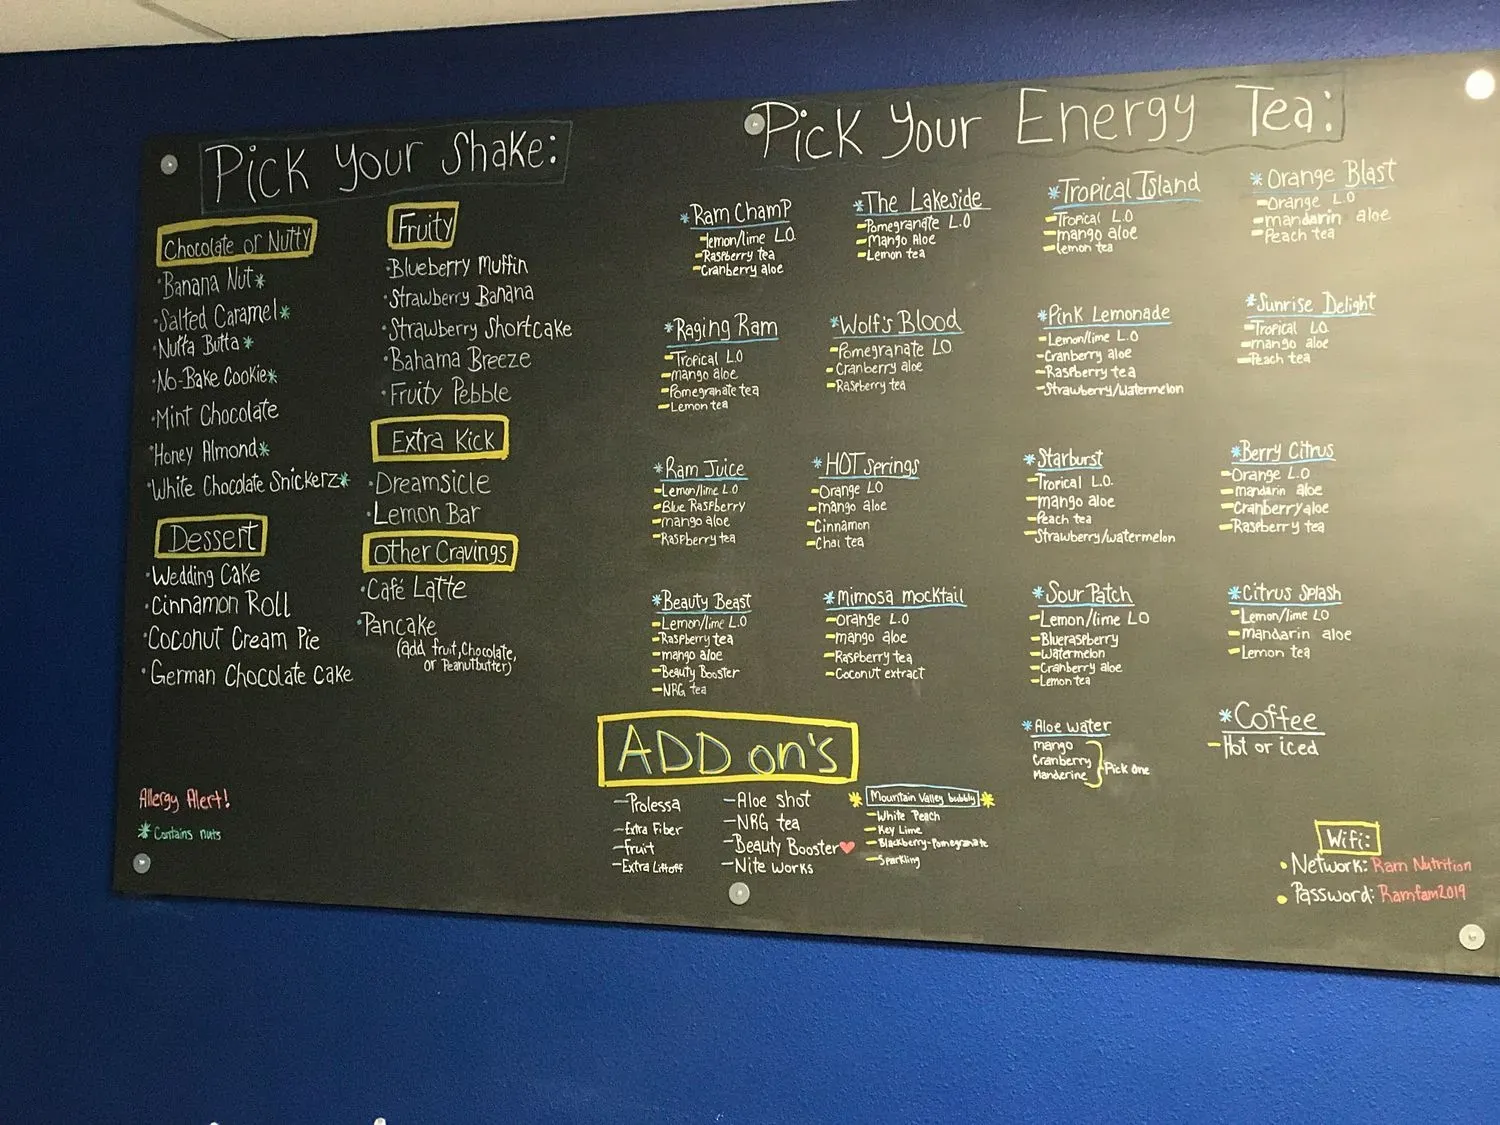 Pick Your Shake:
Chocolate or Nutty
·Banana Nut*
·Salted Caramel*
·Nutta Butta*
·No-Bake Cookie*
·Mint Chocolate
·Honey Almond*
·White Chocolate Snickerz*
Dessert
·Wedding Cake
·Cinnamon Roll
·Coconut Cream Pie
·German Chocolate Cake
Allergy Alert!
* Contains nuts
Fruity
·Blueberry Muffin
·Strawberry Banana
·Strawberry Shortcake
·Bahama Breeze
·Fruity Pebble
Extra Kick
·Dreamsicle
·Lemon Bar
Other Cravings
·Café Latte
·Pancake
(add fruit, Chocolate,
or Peanutbutter)
Pick Your Energy Tea:
*Ram Champ
-lemon/lime L.O.
-Raspberry tea
-Cranberry aloe
*The Lakeside
-Pomegranate L.O
-Mango Aloe
-Lemon tea
*Tropical Island
-Tropical L.O
-mango aloe
-lemon tea
*Orange Blast
-Orange L.O
-mandarin aloe
-Peach tea
*Raging Ram
-Tropical L.O
-mango aloe
-Pomegranate tea
-Lemon tea
*Wolf's Blood
-Pomegranate L.O.
-Cranberry aloe
-Raspberry tea
*Pink Lemonade
-Lemon/lime L.O
-Cranberry aloe
-Raspberry tea
-Strawberry/Watermelon
*Sunrise Delight
-Tropical L.O.
-mango aloe
-Peach tea
*Ram Juice
-Lemon/lime L.O
-Blue Raspberry
-mango aloe
-Raspberry tea
*HOT Springs
-Orange LO
-mango aloe
-Cinnamon
-Chai tea
*Starburst
-Tropical L.O.
-mango aloe
-Peach tea
-Strawberry/watermelon
*Berry Citrus
-Orange L.O
-mandarin aloe
-Cranberry aloe
-Raspberry tea
*Beauty Beast
-Lemon/lime L.O
-Raspberry tea
-mango aloe
-Beauty Booster
-NRG tea
*Mimosa mocktail
-Orange L.O
-mango aloe
-Raspberry tea
-Coconut extract
*Sour Patch
-Lemon/lime LO
-Blueraspberry
-Watermelon
-Cranberry aloe
-Lemon tea
*Citrus Splash
-Lemon/lime LO
-Mandarin aloe
-Lemon tea
*Aloe water
mango
Cranberry
Manderine
Pick one
*Coffee
-Hot or iced
ADD on's
-Prolessa
-Extra Fiber
-Fruit
-Extra Liftoff
-Aloe shot
-NRG tea
-Beauty Booster
-Nite works
*Mountain Valley bubbly*
-White Peach
-Key Lime
-Blackberry-Pomegranate
-Sparkling
Wifi:
·Network: Ram Nutrition
·Password: Ramfam2019